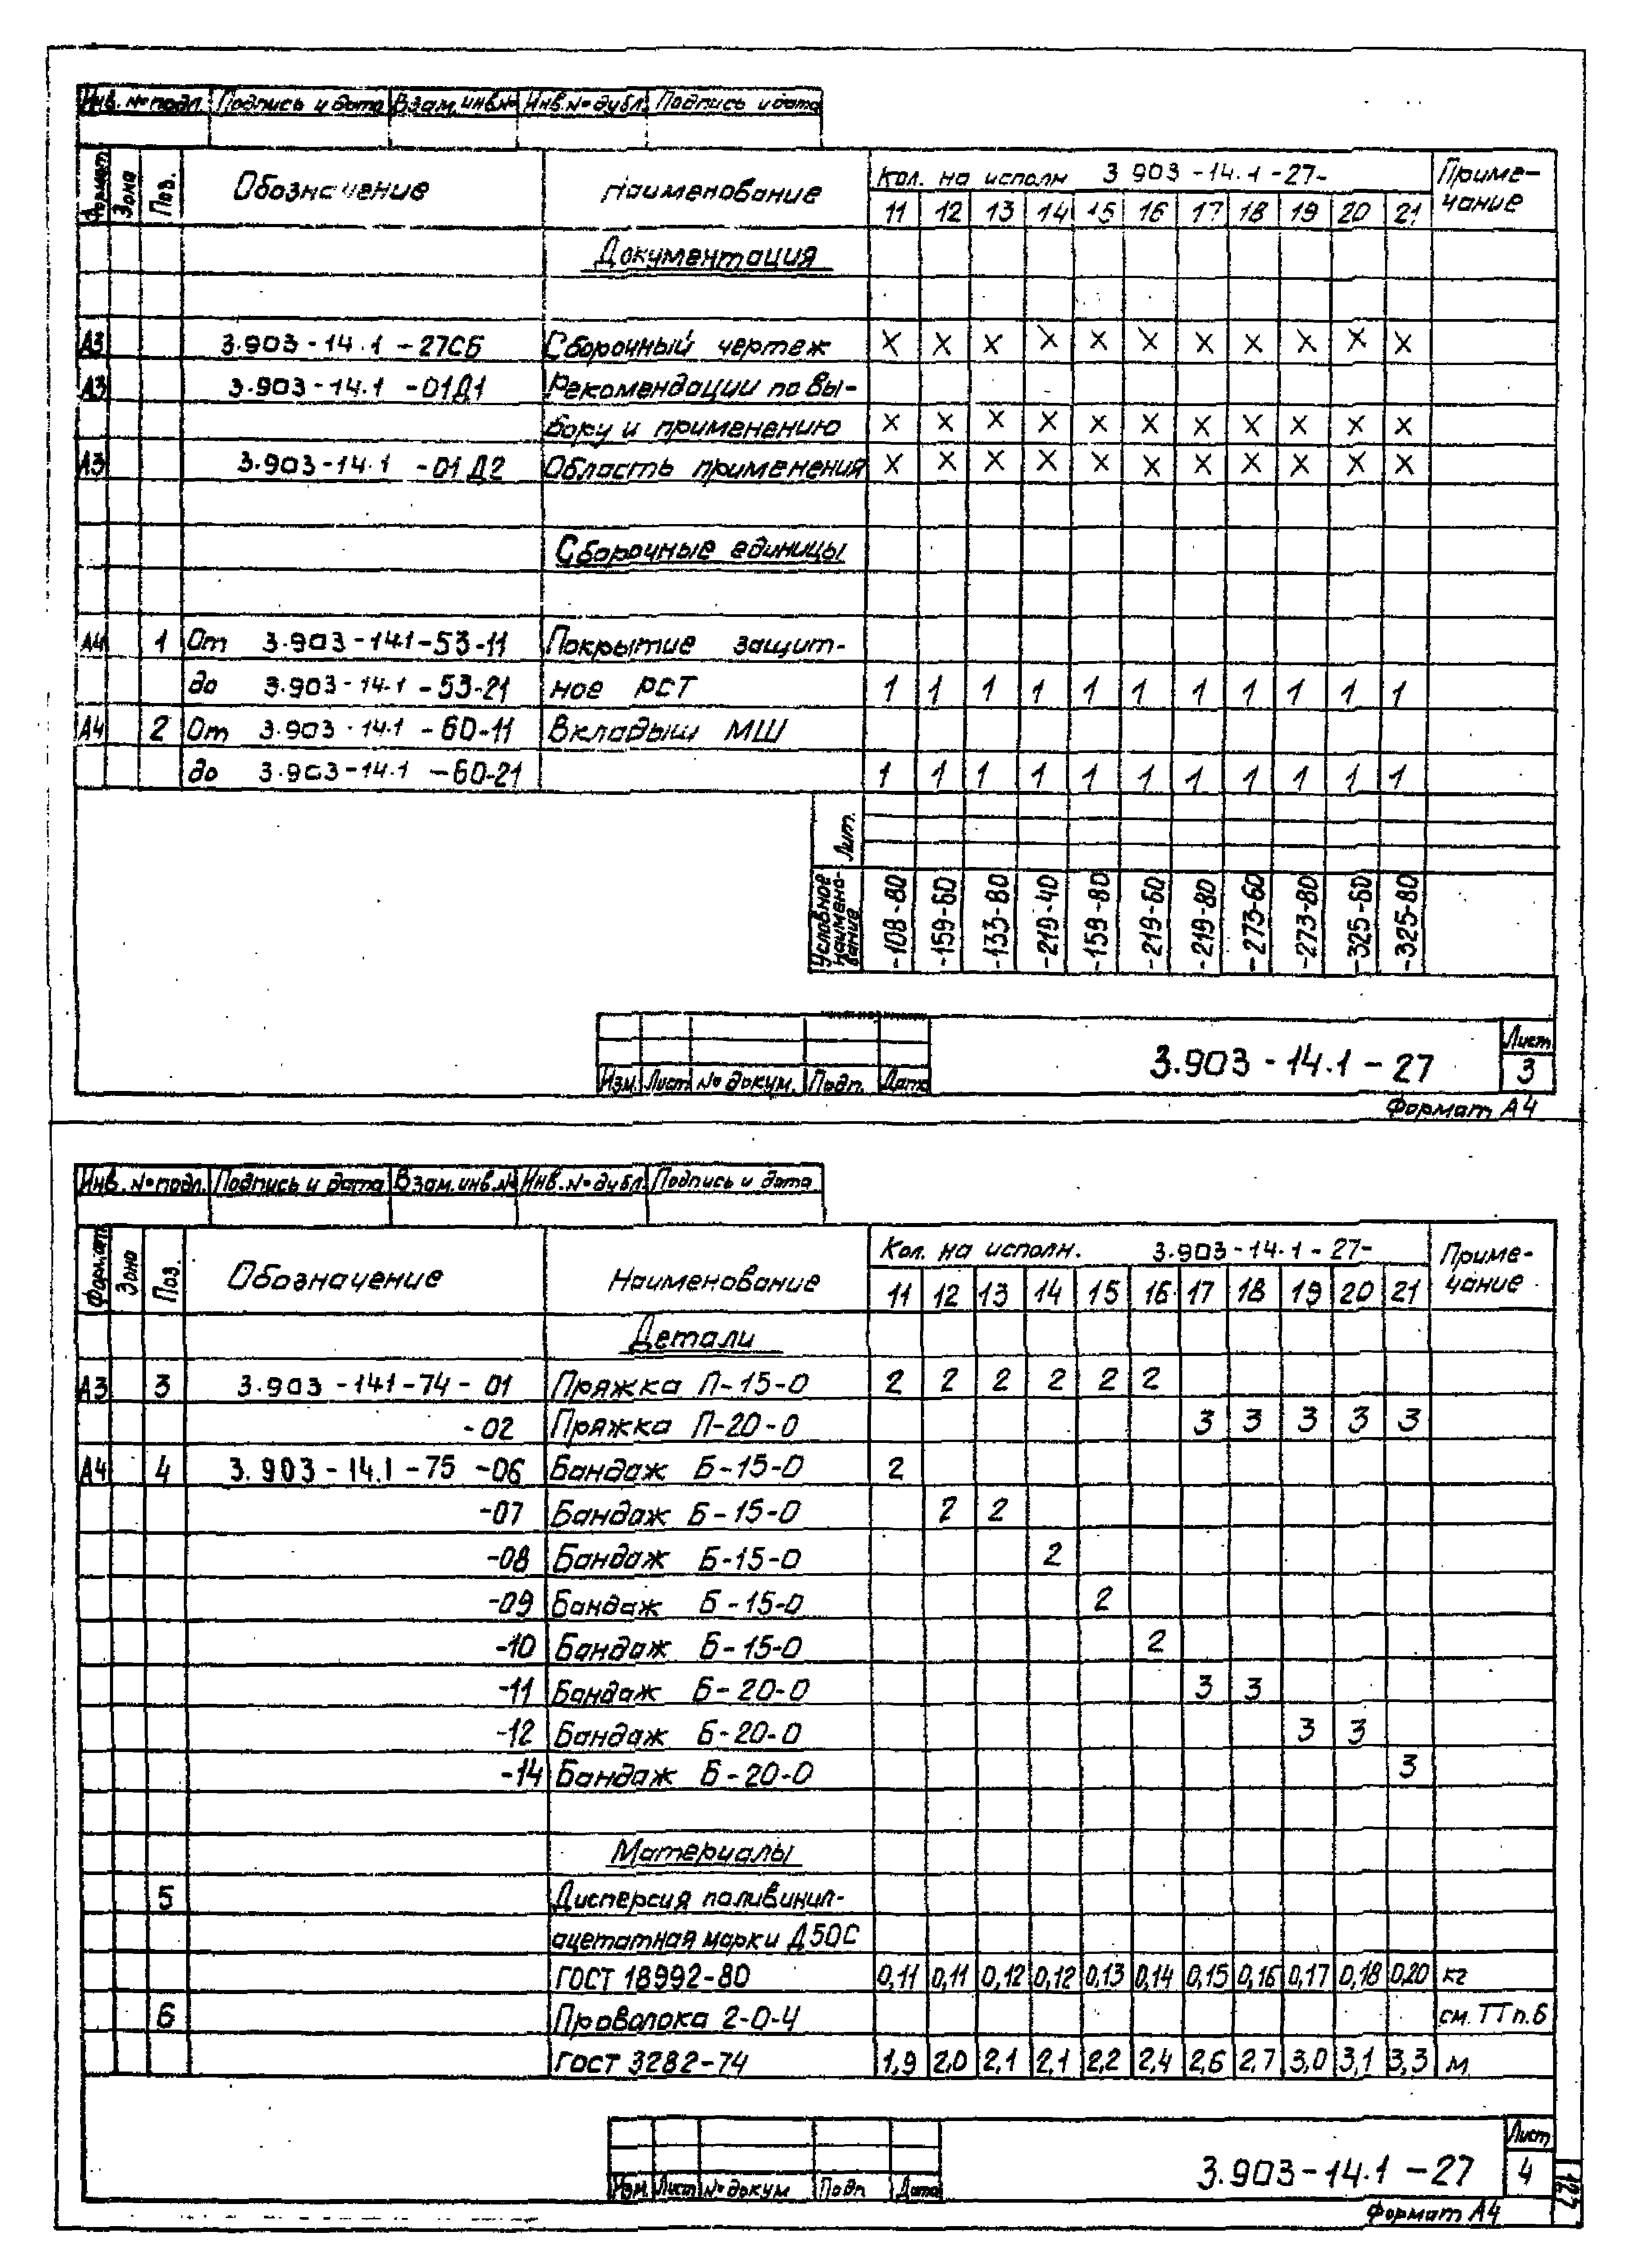 Инв. № подл. Подпись и дата Взам. инв. № Инв. № дубл. Подпись и дата
Формат Зона Поз. Обозначение Наименование Кол. на исполн 3.903-14.1-27- Приме-
чание
11 12 13 14 15 16 17 18 19 20 21
Документация
А3 3.903-14.1-27СБ Сборочный чертеж X X X X X X X X X X X
А3 3.903-14.1-01Д1 Рекомендации по вы-
бору и применению X X X X X X X X X X X
А3 3.903-14.1-01Д2 Область применения X X X X X X X X X X X
Сборочные единицы
А4 1 От 3.903-14.1-53-11 Покрытие защит-
до 3.903-14.1-53-21 ное РСТ 1 1 1 1 1 1 1 1 1 1 1
А4 2 От 3.903-14.1-60-11 Вкладыш МШ
до 3.903-14.1-60-21 1 1 1 1 1 1 1 1 1 1 1
Лит.
Условное наимено-вание -108-80 -159-60 -133-80 -219-40 -159-80 -219-60 -219-80 -273-60 -273-80 -325-60 -325-80
Изм. Лист № докум. Подп. Дата 3.903-14.1-27 Лист
3
Формат А4
Инв. № подл. Подпись и дата Взам. инв. № Инв. № дубл. Подпись и дата
Формат Зона Поз. Обозначение Наименование Кол. на исполн. 3.903-14.1-27- Приме-
чание
11 12 13 14 15 16 17 18 19 20 21
Детали
А3 3 3.903-141-74-01 Пряжка П-15-0 2 2 2 2 2 2
-02 Пряжка П-20-0 3 3 3 3 3
А4 4 3.903-14.1-75-06 Бандаж Б-15-0 2
-07 Бандаж Б-15-0 2 2
-08 Бандаж Б-15-0 2
-09 Бандаж Б-15-0 2
-10 Бандаж Б-15-0 2
-11 Бандаж Б-20-0 3 3
-12 Бандаж Б-20-0 3 3
-14 Бандаж Б-20-0 3
Материалы
5 Дисперсия поливинил-
ацетатная марки Д50С
ГОСТ 18992-80 0,11 0,11 0,12 0,12 0,13 0,14 0,15 0,16 0,17 0,18 0,20 кг
6 Проволока 2-0-4 см. ТТ п.6
ГОСТ 3282-74 1,9 2,0 2,1 2,1 2,2 2,4 2,6 2,7 3,0 3,1 3,3 м
Изм. Лист № докум Подп Дата 3.903-14.1-27 Лист
4
Формат А4